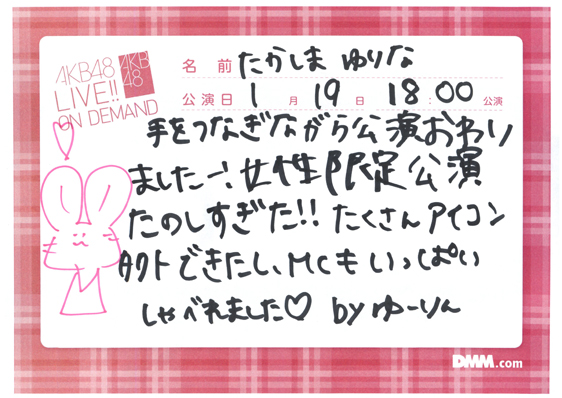 AKB48
LIVE!!
ON DEMAND
AKB
48
名 前 たかしま ゆりな
公演日 1 月 19 日 18:00 公演
手をつなぎながら公演おわり
ましたー! 女性限定公演
たのしすぎた!! たくさんアイコン
タクトできたし、MCもいっぱい
しゃべれました♡ byゆーりん
DMM.com